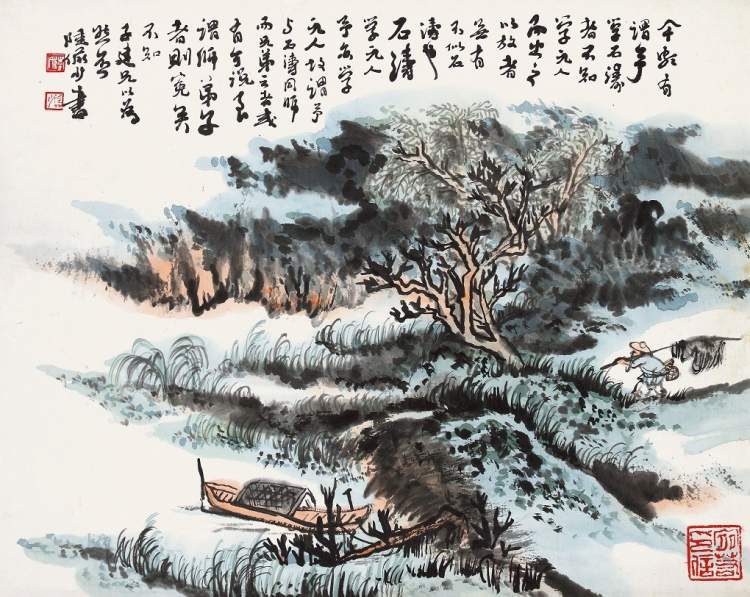 有
謂予
學石濤
者不知
學元人
而出之
以放者
無有
不似石
濤也
石濤
學元人
予每學
元人故謂予
与石濤同師
而兄弟之者或
有可說若
謂師弟子
者則冤矣
不知
子建兄以為
然否
陸儼少書